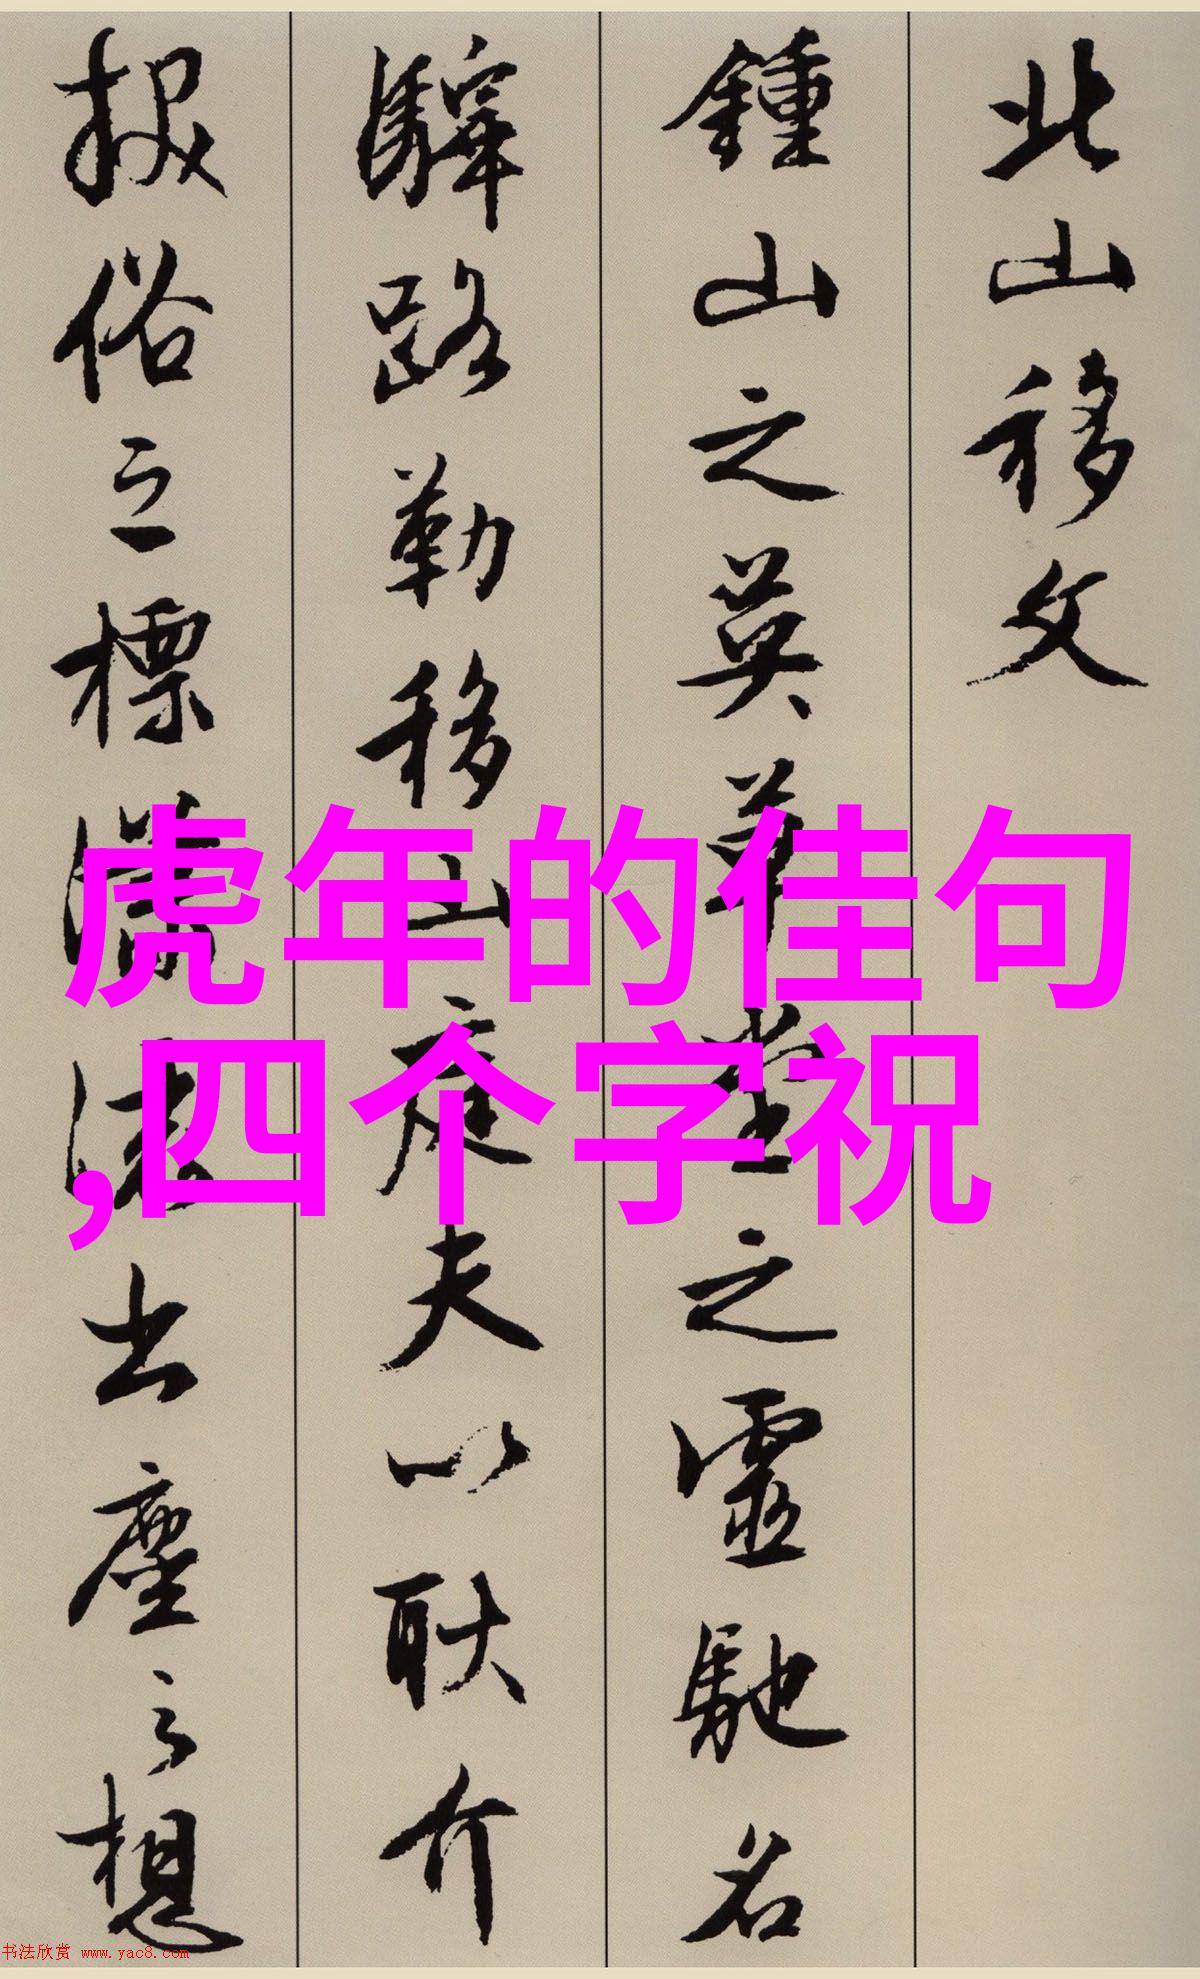 北山移文
鍾山之英草堂之靈馳名
驛路勒移山庭夫以耿介
拔俗之標瀟洒出塵之想
虎年的佳句
,四个字祝
书法欣赏 www.yac8.com